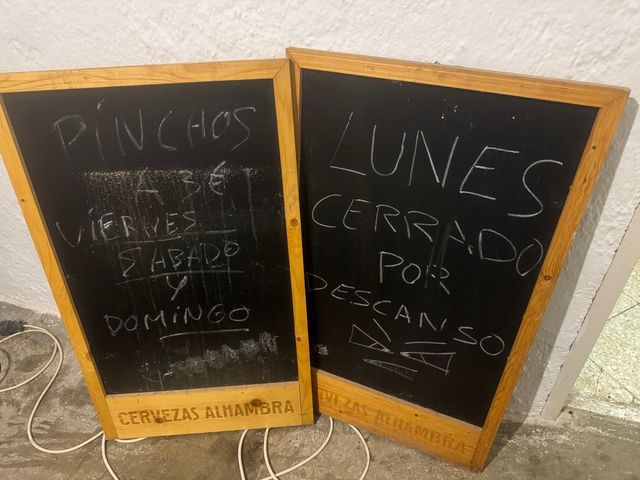 PINCHOS
A 3€
VIERNES
SABADO
Y
DOMINGO
CERVEZAS ALHAMBRA
LUNES
CERRADO
POR
DESCANSO
CERVEZAS ALHAMBRA